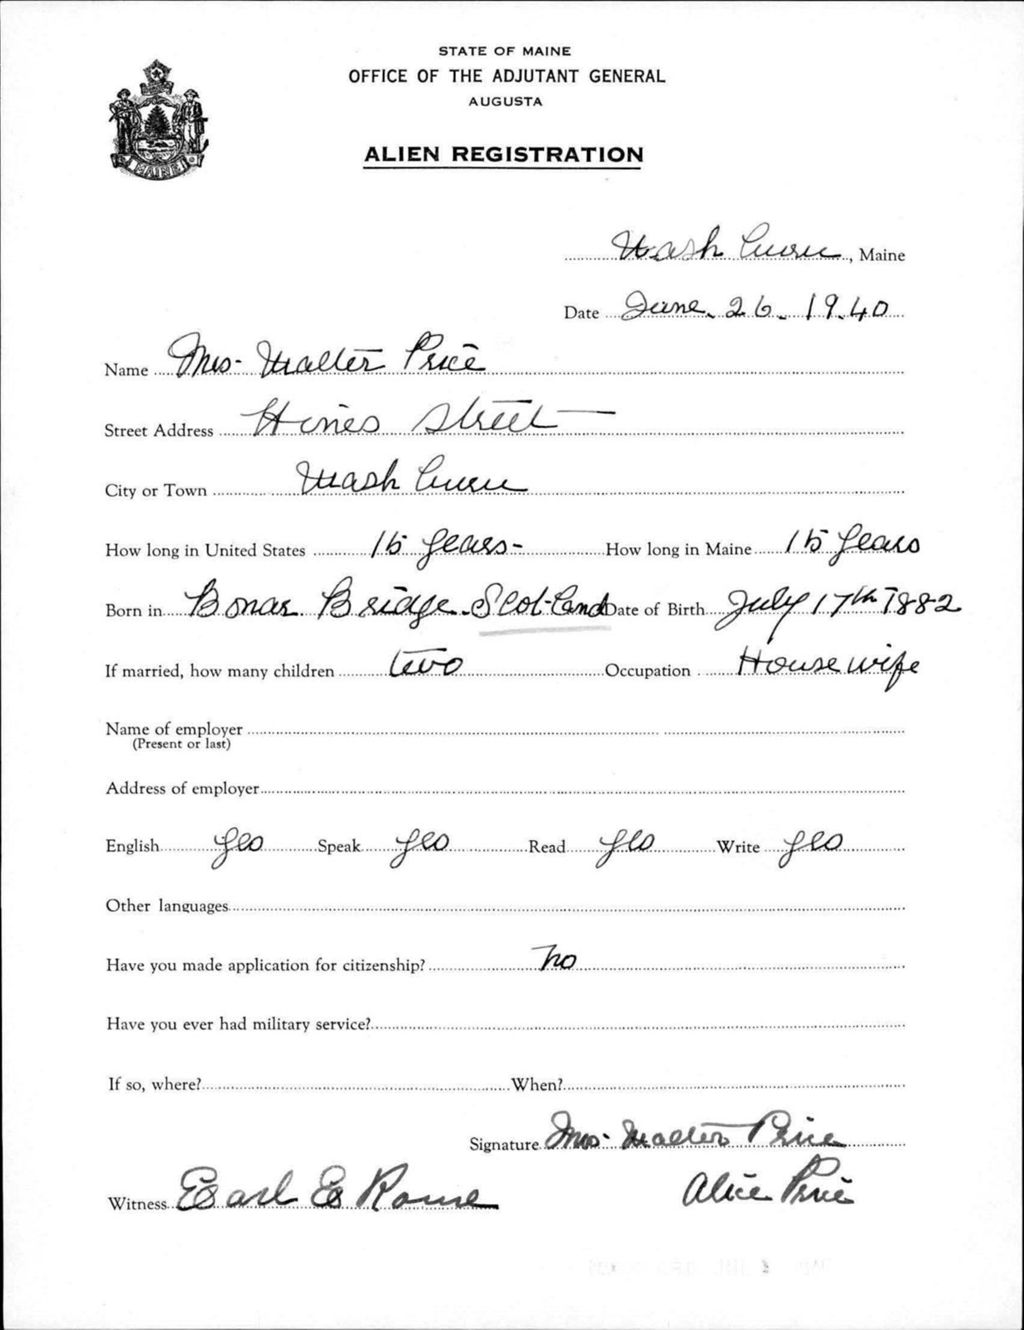 STATE OF MAINE
OFFICE OF THE ADJUTANT GENERAL
AUGUSTA
ALIEN REGISTRATION
MAINE
Wash burn, Maine
Date June. 26. 1940
Name Mrs. Walter Price
Street Address Hines Street
City or Town Wash burn
How long in United States 15 years - How long in Maine 15 years
Born in Bonar Bridge Scot-land Date of Birth July 17th 1882
If married, how many children two Occupation House wife
Name of employer
(Present or last)
Address of employer
English yes Speak yes Read yes Write yes
Other languages
Have you made application for citizenship? no
Have you ever had military service?
If so, where? When?
Signature Mrs. Walter Price
Witness Earl E Rowe Alice Price